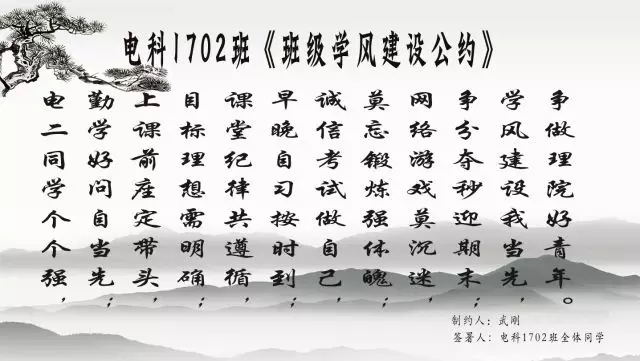 电科1702班《班级学风建设公约》
电二同学个个强，
勤学好问自当先；
上课前座定带头，
目标理想需明确；
课堂纪律共遵循，
早晚自习按时到；
诚信考试做自己，
莫忘锻炼强体魄；
网络游戏莫沉迷，
争分夺秒迎期末；
学风建设我当先，
争做理院好青年。
制约人：武刚
签署人：电科1702班全体同学